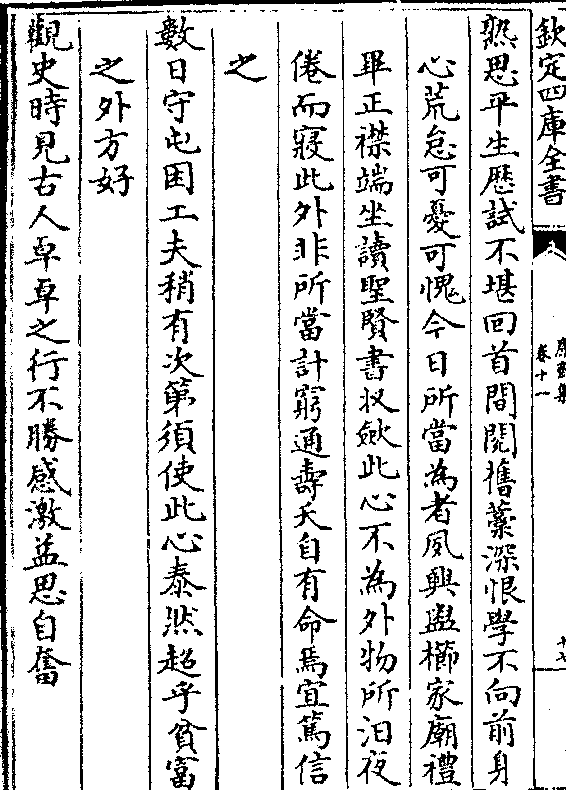 欽定四庫全書
康齋集
卷十一
十七
熟思平生歴試不堪回首間閲舊藁深恨學不向前身
心荒怠可憂可愧今日所當為者夙興盥櫛家廟禮
畢正襟端坐讀聖賢書收斂此心不為外物所汩夜
倦而寢此外非所當計窮通壽夭自有命焉宜篤信
之
數日守屯困工夫稍有次第須使此心泰然超乎貧富
之外方好
觀史時見古人卓卓之行不勝感激益思自奮